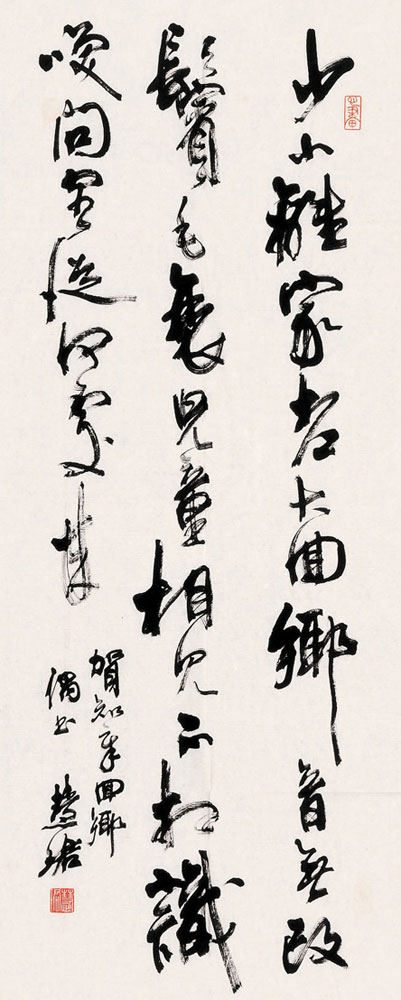 少小離家老大回鄉音無改
鬢毛衰兒童相見不相識
咲問客從何處來
賀知章回鄉
偶書 慧珺